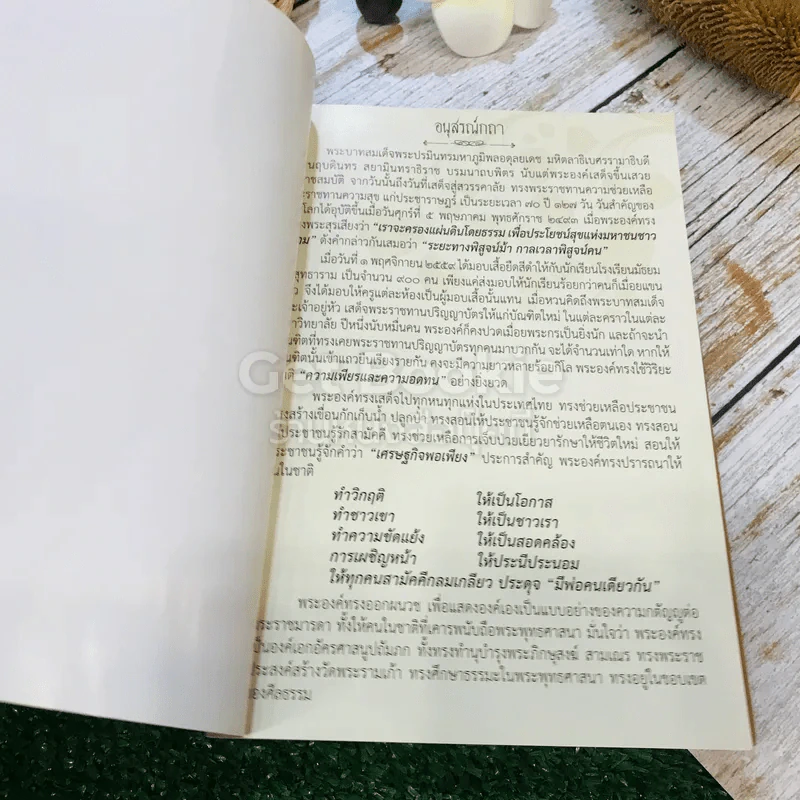 อนุสรณ์กถา
พระบาทสมเด็จพระปรมินทรมหาภูมิพลอดุลยเดช มหิตลาธิเบศรรามาธิบดี
นฤบดินทร สยามินทราธิราช บรมนาถบพิตร นับแต่พระองค์เสด็จขึ้นเสวย
าชสมบัติ จากวันนั้นถึงวันที่เสด็จสู่สวรรคาลัย ทรงพระราชทานความช่วยเหลือ
ะราชทานความสุข แก่ประชาราษฎร์ เป็นระยะเวลา ๗๐ ปี ๑๒๗ วัน วันสำคัญของ
โลกได้อุบัติขึ้นเมื่อวันศุกร์ที่ ๕ พฤษภาคม พุทธศักราช ๒๔๙๓ เมื่อพระองค์ทรง
งพระสุรเสียงว่า “เราจะครองแผ่นดินโดยธรรม เพื่อประโยชน์สุขแห่งมหาชนชาว
าม” ดังคำกล่าวกันเสมอว่า “ระยะทางพิสูจน์ม้า กาลเวลาพิสูจน์คน”
เมื่อวันที่ ๑ พฤศจิกายน ๒๕๕๙ ได้มอบเสื้อยืดสีดำให้กับนักเรียนโรงเรียนมัธยม
สุทธาราม เป็นจำนวน ๙๐๐ คน เพียงแค่ส่งมอบให้นักเรียนร้อยกว่าคนก็เมื่อยแขน
ว จึงได้มอบให้ครูแต่ละห้องเป็นผู้มอบเสื้อนั้นแทน เมื่อหวนคิดถึงพระบาทสมเด็จ
ะเจ้าอยู่หัว เสด็จพระราชทานปริญญาบัตรให้แก่บัณฑิตใหม่ ในแต่ละคราวในแต่ละ
าวิทยาลัย ปีหนึ่งนับหมื่นคน พระองค์ก็คงปวดเมื่อยพระกรเป็นยิ่งนัก และถ้าจะนำ
ณฑิตที่ทรงเคยพระราชทานปริญญาบัตรทุกคนมาบวกกัน จะได้จำนวนเท่าใด หากให้
ณฑิตนั้นเข้าแถวยืนเรียงรายกัน คงจะมีความยาวหลายร้อยกิโล พระองค์ทรงใช้วิริยะ
ติ “ความเพียรและความอดทน” อย่างยิ่งยวด
พระองค์ทรงเสด็จไปทุกหนทุกแห่งในประเทศไทย ทรงช่วยเหลือประชาชน
งสร้างเขื่อนกักเก็บน้ำ ปลูกป่า ทรงสอนให้ประชาชนรู้จักช่วยเหลือตนเอง ทรงสอน
ประชาชนรู้รักสามัคคี ทรงช่วยเหลือการเจ็บป่วยเยียวยารักษาให้ชีวิตใหม่ สอนให้
ะชาชนรู้จักคำว่า “เศรษฐกิจพอเพียง” ประการสำคัญ พระองค์ทรงปรารถนาให้
นในชาติ
ทำวิกฤติ ให้เป็นโอกาส
ทำชาวเขา ให้เป็นชาวเรา
ทำความขัดแย้ง ให้เป็นสอดคล้อง
การเผชิญหน้า ให้ประนีประนอม
ให้ทุกคนสามัคคีกลมเกลียว ประดุจ “มีพ่อคนเดียวกัน”
พระองค์ทรงออกผนวช เพื่อแสดงองค์เองเป็นแบบอย่างของความกตัญญูต่อ
ะราชมารดา ทั้งให้คนในชาติที่เคารพนับถือพระพุทธศาสนา มั่นใจว่า พระองค์ทรง
ป็นองค์เอกอัครศาสนูปถัมภก ทั้งทรงทำนุบำรุงพระภิกษุสงฆ์ สามเณร ทรงพระราช
ประสงค์สร้างวัดพระรามเก้า ทรงศึกษาธรรมะในพระพุทธศาสนา ทรงอยู่ในขอบเขต
องศีลธรรม